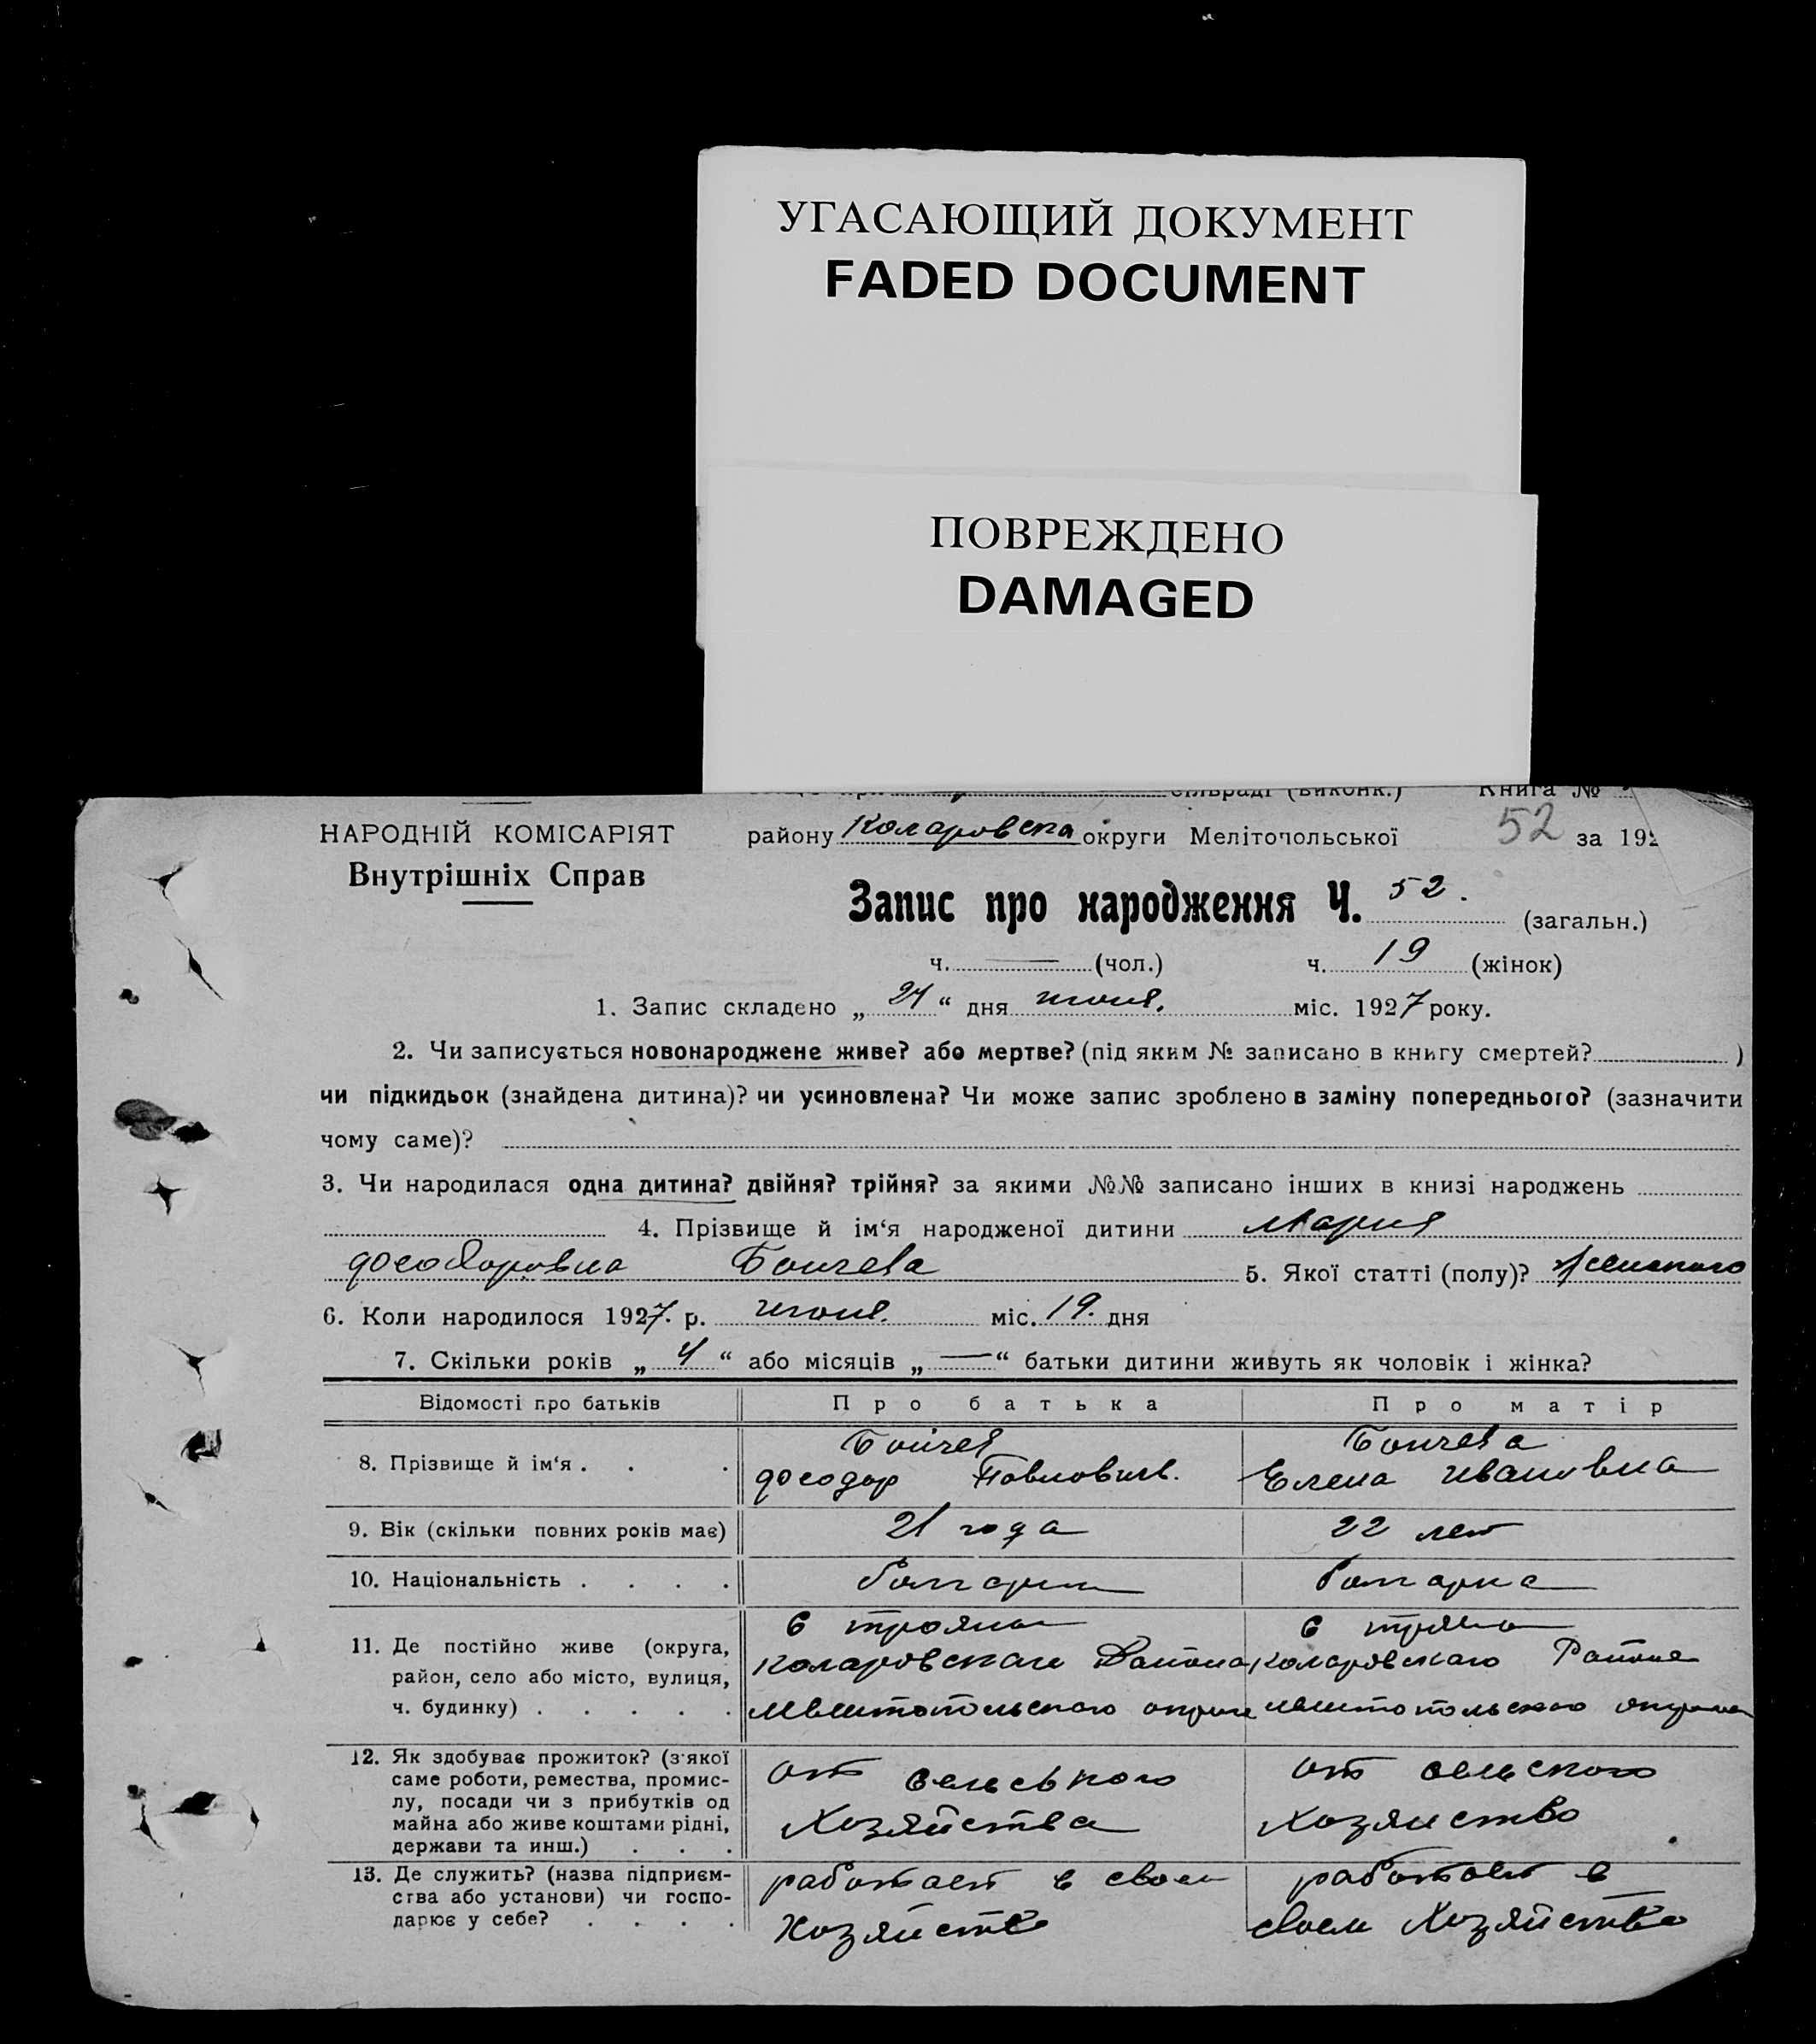 УГАСАЮЩИЙ ДОКУМЕНТ
FADED DOCUMENT
ПОВРЕЖДЕНО
DAMAGED
сільраді (виконк.) Книга №
НАРОДНІЙ КОМІСАРІЯТ
Внутрішніх Справ
району Коларовска округи Мелітопольської 52 за 192
Запис про народження Ч. 52. (загальн.)
ч. — (чол.) ч. 19 (жінок)
1. Запис складено „ 24 “ дня июня. міс. 1927 року.
2. Чи записується новонароджене живе? або мертве? (під яким № записано в книгу смертей? )
чи підкидьок (знайдена дитина)? чи усиновлена? Чи може запис зроблено в заміну попереднього? (зазначити
чому саме)?
3. Чи народилася одна дитина? двійня? трійня? за якими №№ записано інших в книзі народжень
4. Прізвище й ім‘я народженої дитини Мария
Феодоровна Бончева 5. Якої статті (полу)? Женского
6. Коли народилося 1927. р. июня. міс. 19. дня
7. Скільки років „ 4 “ або місяців „ — “ батьки дитини живуть як чоловік і жінка?
Відомості про батьків Про батька Про матір
8. Прізвище й ім‘я . . .
Бончев
Феодор Павлович.
Бончева
Елена Ивановна
9. Вік (скільки повних років має) 21 года 22 лет
10. Національність . . . . болгарин болгарка
11. Де постійно живе (округа,
район, село або місто, вулиця,
ч. будинку) . . . . .
с трояны
коларовскаго Района
Мелитопольского округа
с трояны
коларовскаго Района
мелитопольского округа
12. Як здобуває прожиток? (з'якої
саме роботи, ремества, промис-
лу, посади чи з прибутків од
майна або живе коштами рідні,
держави та инш.) . . .
от сельського
Хозяйства
от сельского
Хозяйство
13. Де служить? (назва підприєм-
ства або установи) чи госпо-
дарює у себе? . . . .
работает в своем
Хозяйстве
работает в
своем Хозяйстве